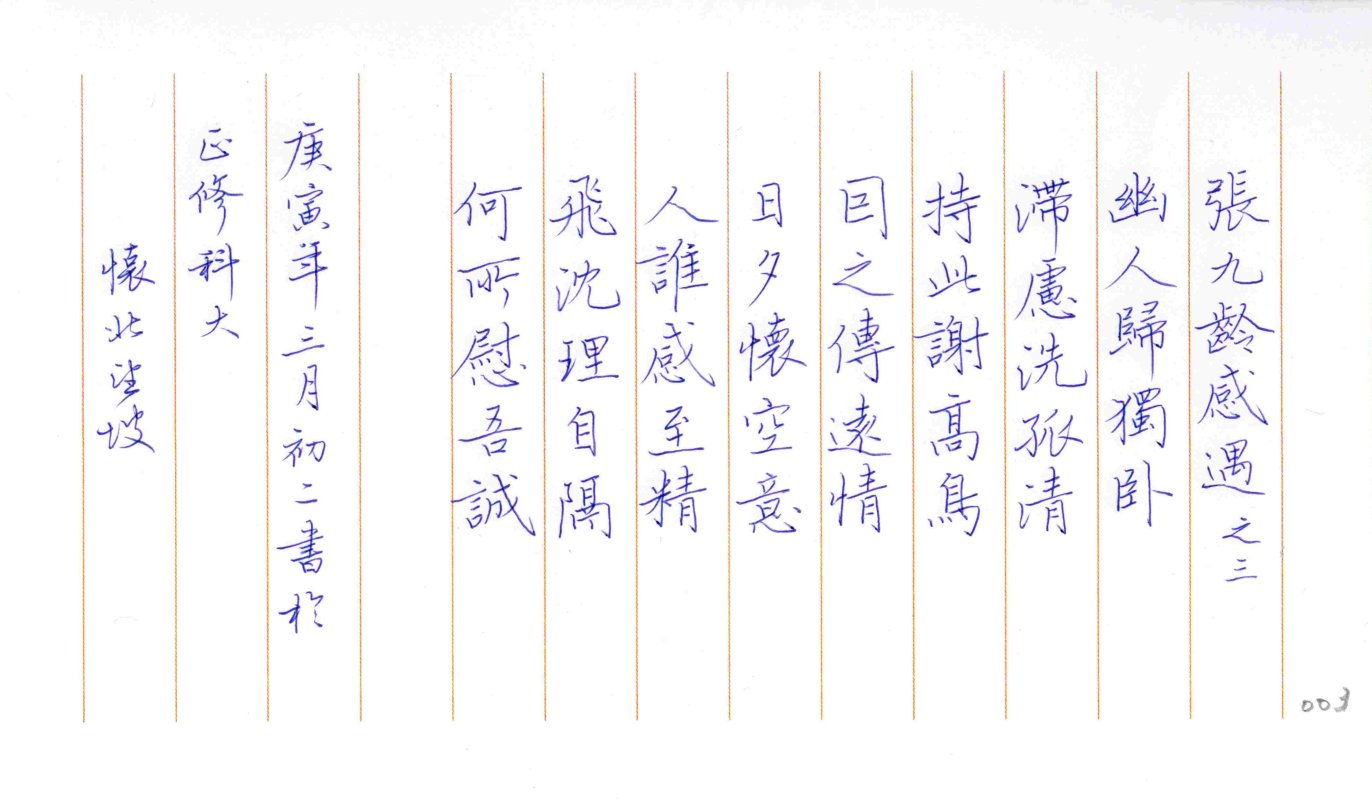 張九齡感遇之三
幽人歸獨卧
滯慮洗孤清
持此謝高鳥
因之傳遠情
日夕懷空意
人誰感至精
飛沈理自隔
何所慰吾誠
庚寅年三月初二書於
正修科大
懷北坡
003